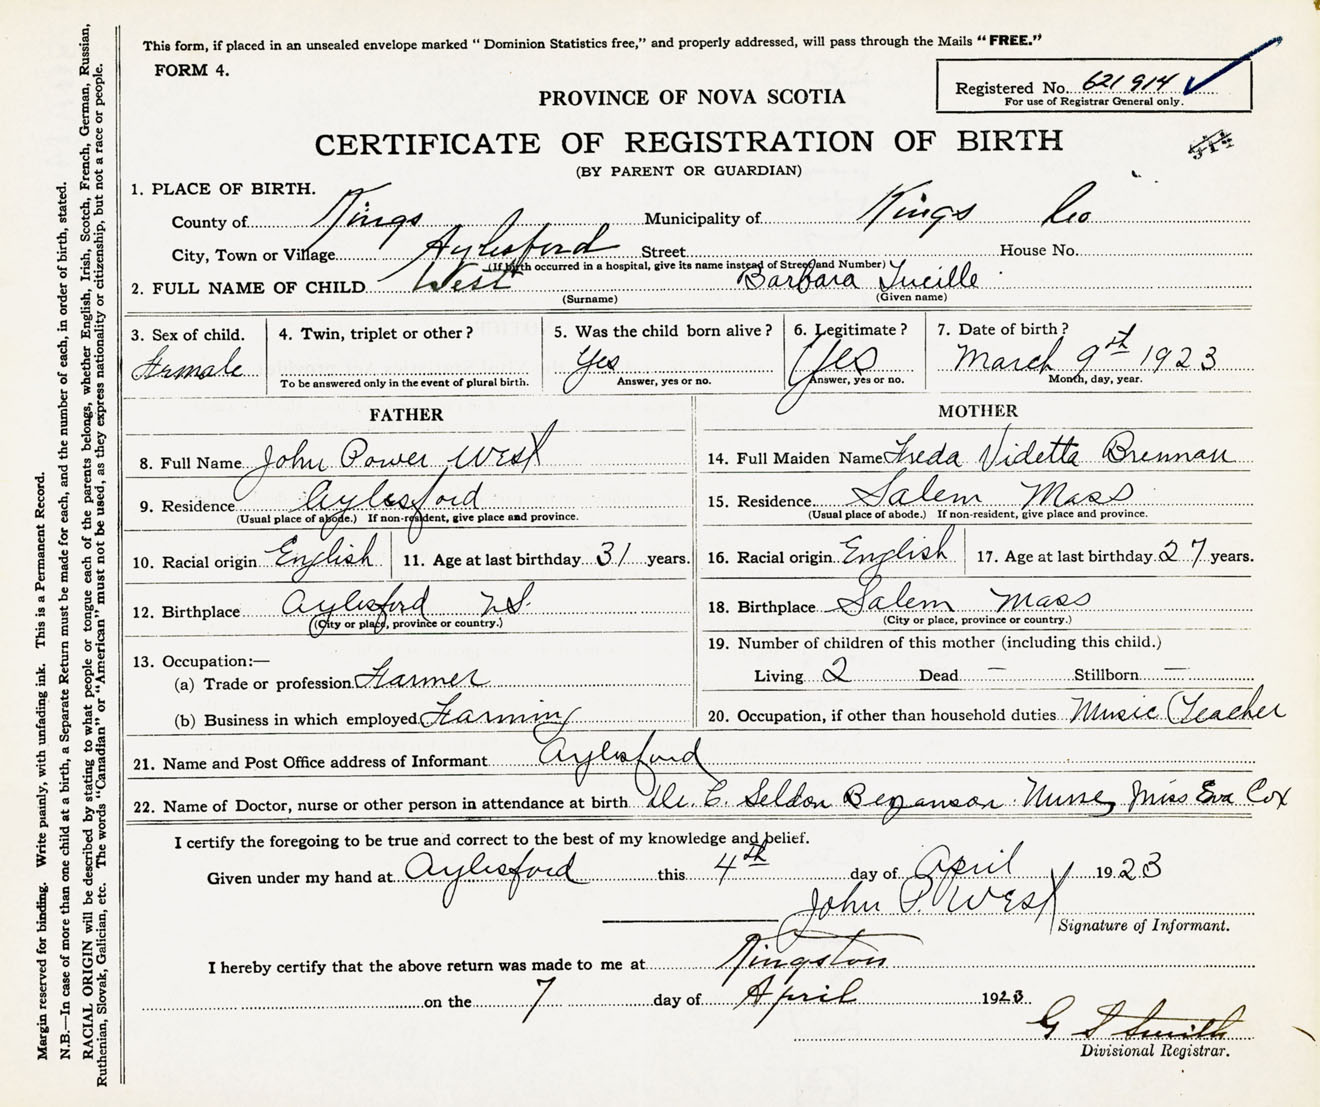 This form, if placed in an unsealed envelope marked "Dominion Statistics free," and properly addressed, will pass through the Mails "FREE."
FORM 4.
Registered No. 621914
For use of Registrar General only.
PROVINCE OF NOVA SCOTIA
CERTIFICATE OF REGISTRATION OF BIRTH
(BY PARENT OR GUARDIAN)
1. PLACE OF BIRTH.
County of Kings Municipality of Kings Co
City, Town or Village Aylesford Street House No.
(If birth occurred in a hospital, give its name instead of Street and Number)
2. FULL NAME OF CHILD West Barbara Lucille
(Surname) (Given name)
3. Sex of child. 4. Twin, triplet or other? 5. Was the child born alive? 6. Legitimate? 7. Date of birth?
Female Yes Yes March 9th 1923
To be answered only in the event of plural birth. Answer, yes or no. Answer, yes or no. Month, day, year.
FATHER MOTHER
8. Full Name John Power West 14. Full Maiden Name Freda Videtta Brennan
9. Residence Aylesford 15. Residence Salem Mass
(Usual place of abode.) If non-resident, give place and province. (Usual place of abode.) If non-resident, give place and province.
10. Racial origin English 11. Age at last birthday 31 years. 16. Racial origin English 17. Age at last birthday 27 years.
12. Birthplace Aylesford N.S. 18. Birthplace Salem Mass
(City or place, province or country.) (City or place, province or country.)
19. Number of children of this mother (including this child.)
13. Occupation:—
(a) Trade or profession Farmer Living 2 Dead — Stillborn —
(b) Business in which employed Farming 20. Occupation, if other than household duties Music Teacher
21. Name and Post Office address of Informant Aylesford
22. Name of Doctor, nurse or other person in attendance at birth Dr. C. Seldon Bezanson. Nurse, Miss Eva Cox
I certify the foregoing to be true and correct to the best of my knowledge and belief.
Given under my hand at Aylesford this 4th day of April 1923
John P. West
Signature of Informant.
I hereby certify that the above return was made to me at Kingston
on the 7 day of April 1923.
G S Smith
Divisional Registrar.
Margin reserved for binding. Write plainly, with unfading ink. This is a Permanent Record.
N.B.—In case of more than one child at a birth, a Separate Return must be made for each, and the number of each, in order of birth, stated.
RACIAL ORIGIN will be described by stating to what people or tongue each of the parents belongs, whether English, Irish, Scotch, French, German, Russian,
Ruthenian, Slovak, Galician, etc. The words "Canadian" or "American" must not be used, as they express nationality or citizenship, but not a race or people.